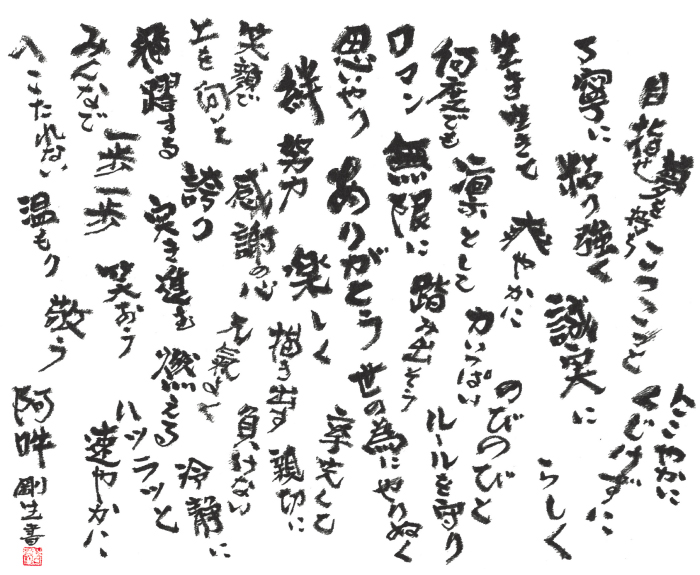 目指せ
夢を
こつこつと
にこやかに
くじけずに
丁寧に
粘り強く
誠実に
らしく
生き生きと
爽やかに
のびのびと
何度でも
凛として
力いっぱい
ルールを守り
ロマン
無限に
踏み出そう
思いやり
ありがとう
世の為にやりぬく
絆
努力
楽しく
描き出す
親切に
笑顔で
感謝の心
元気よく
負けない
上を向いて
誇り
冷静に
飛躍する
突き進む
燃える
ハツラツと
みんなで
一歩一歩
笑おう
速やかに
へこたれない
温もり
敬う
阿吽
剛生書